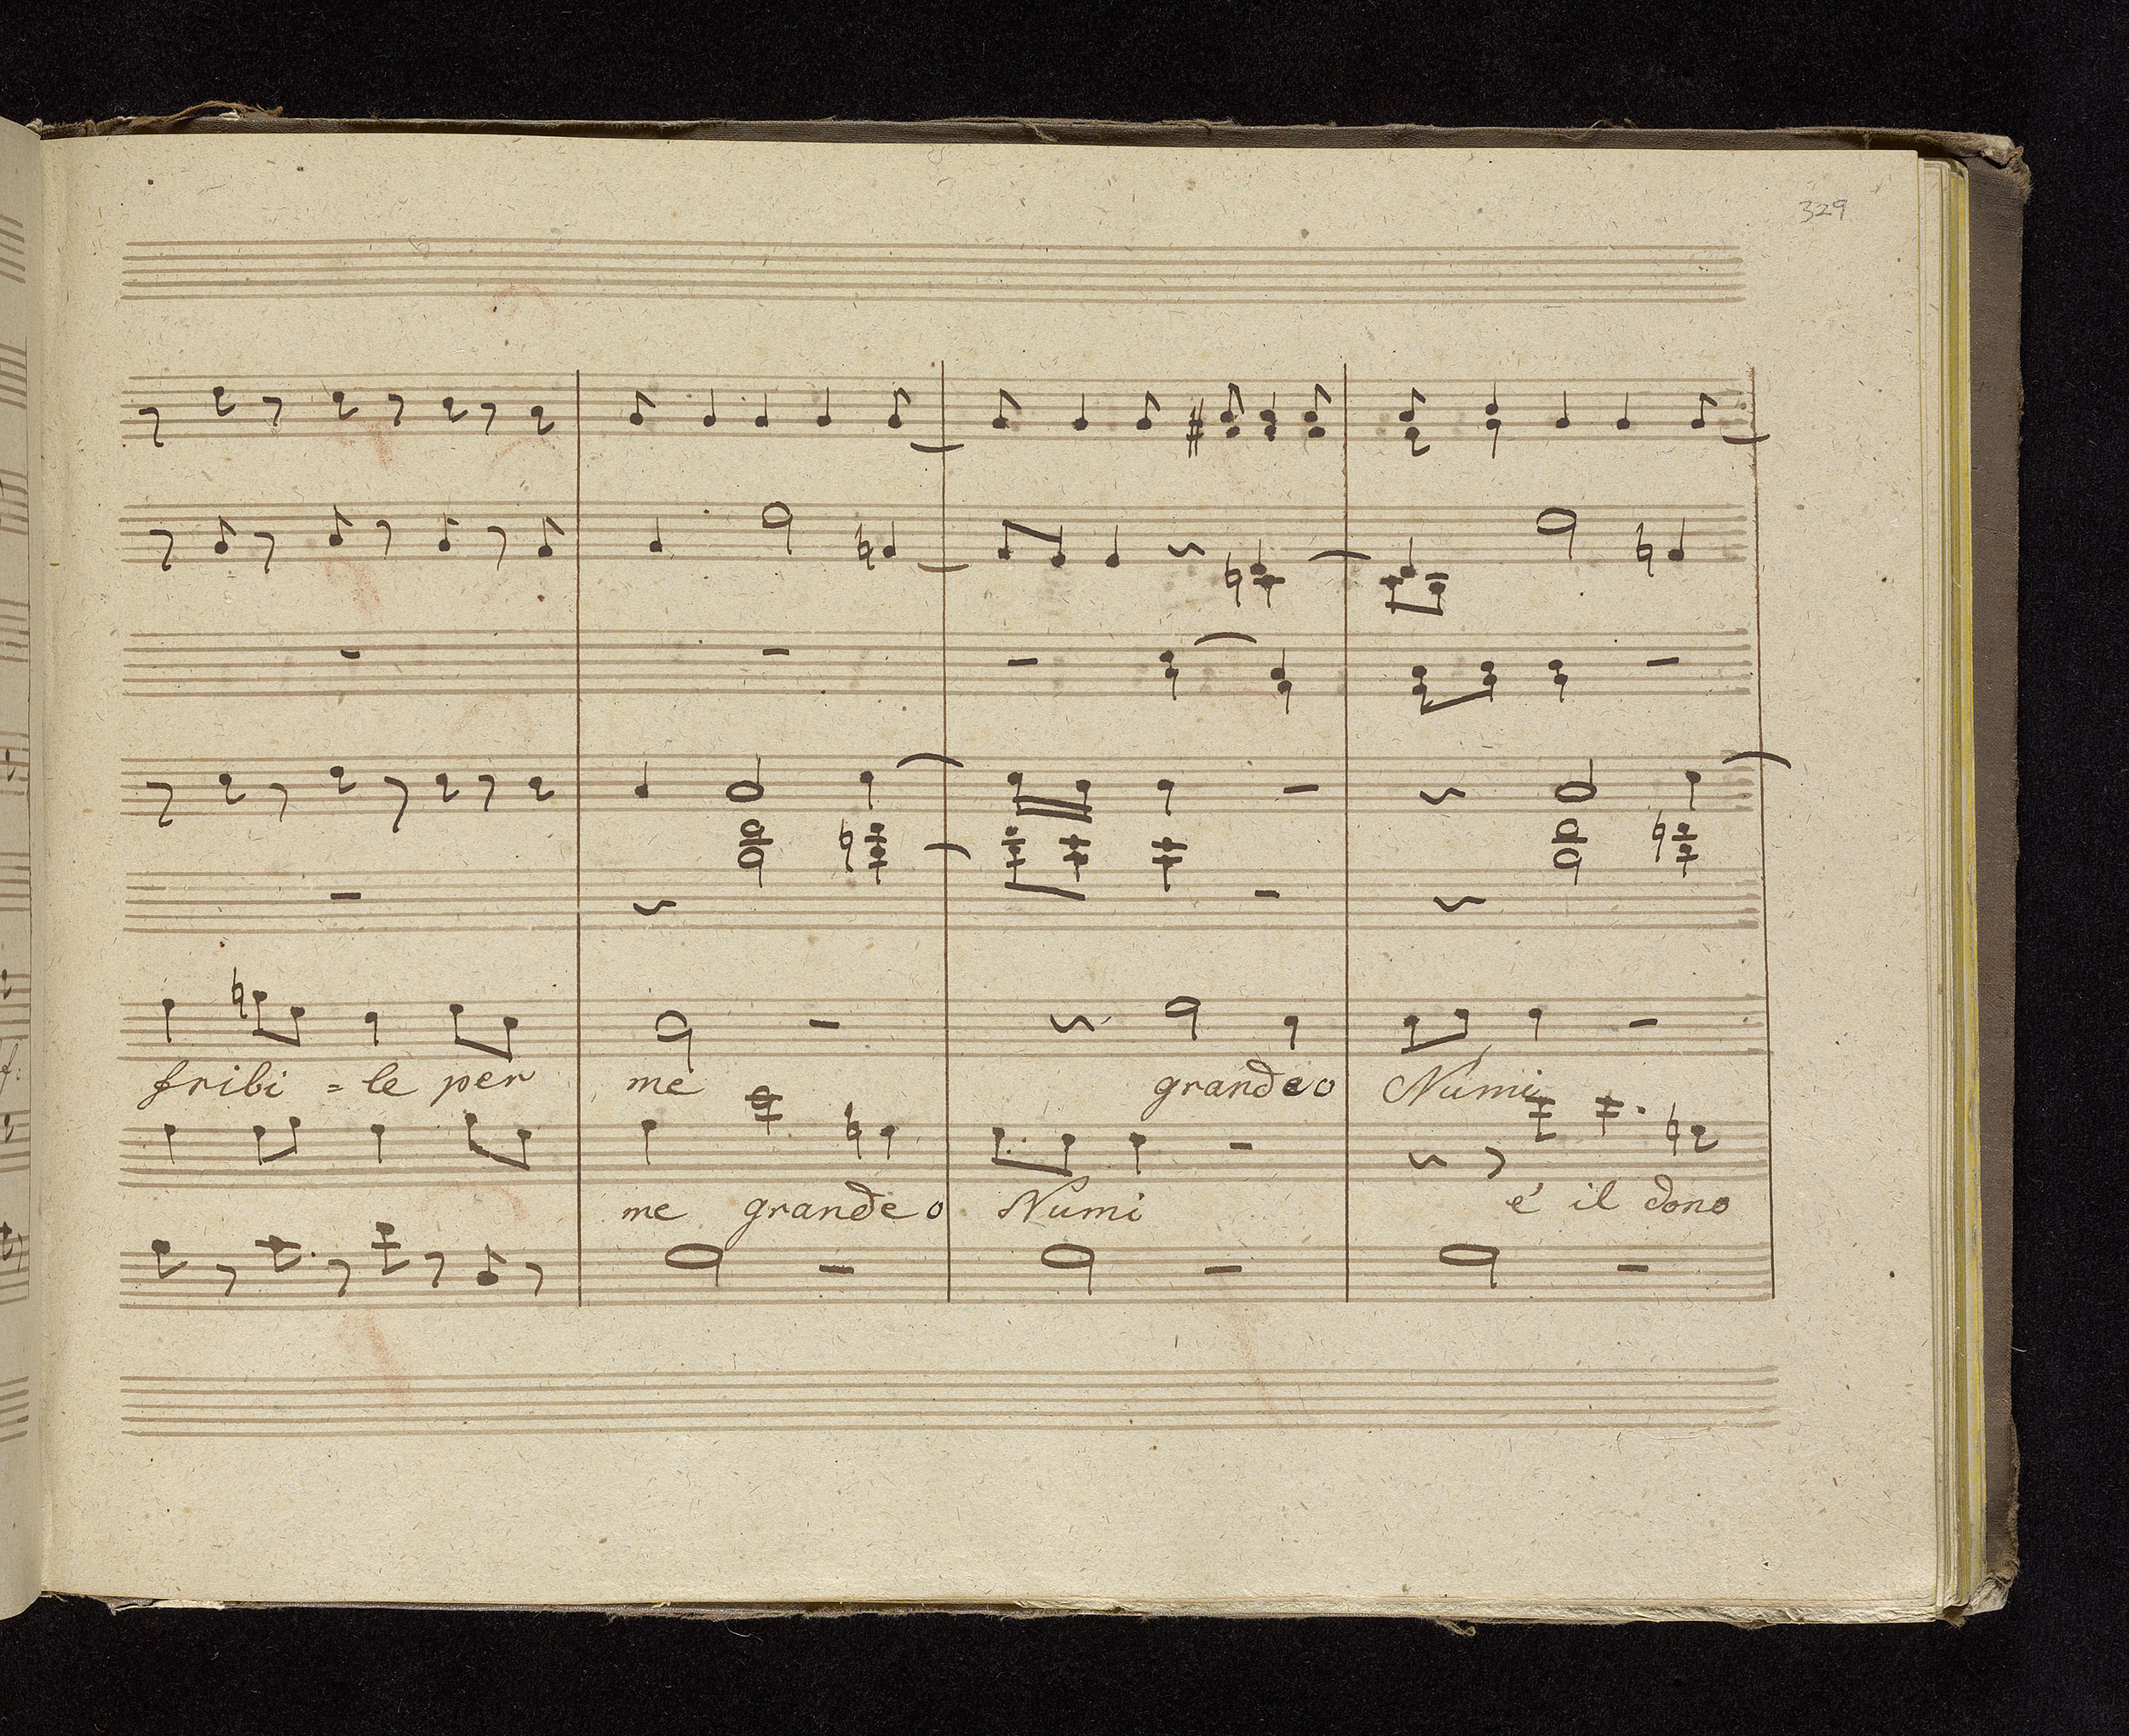 329
fribi = le per me grande o Numi
me grande o Numi é il dono